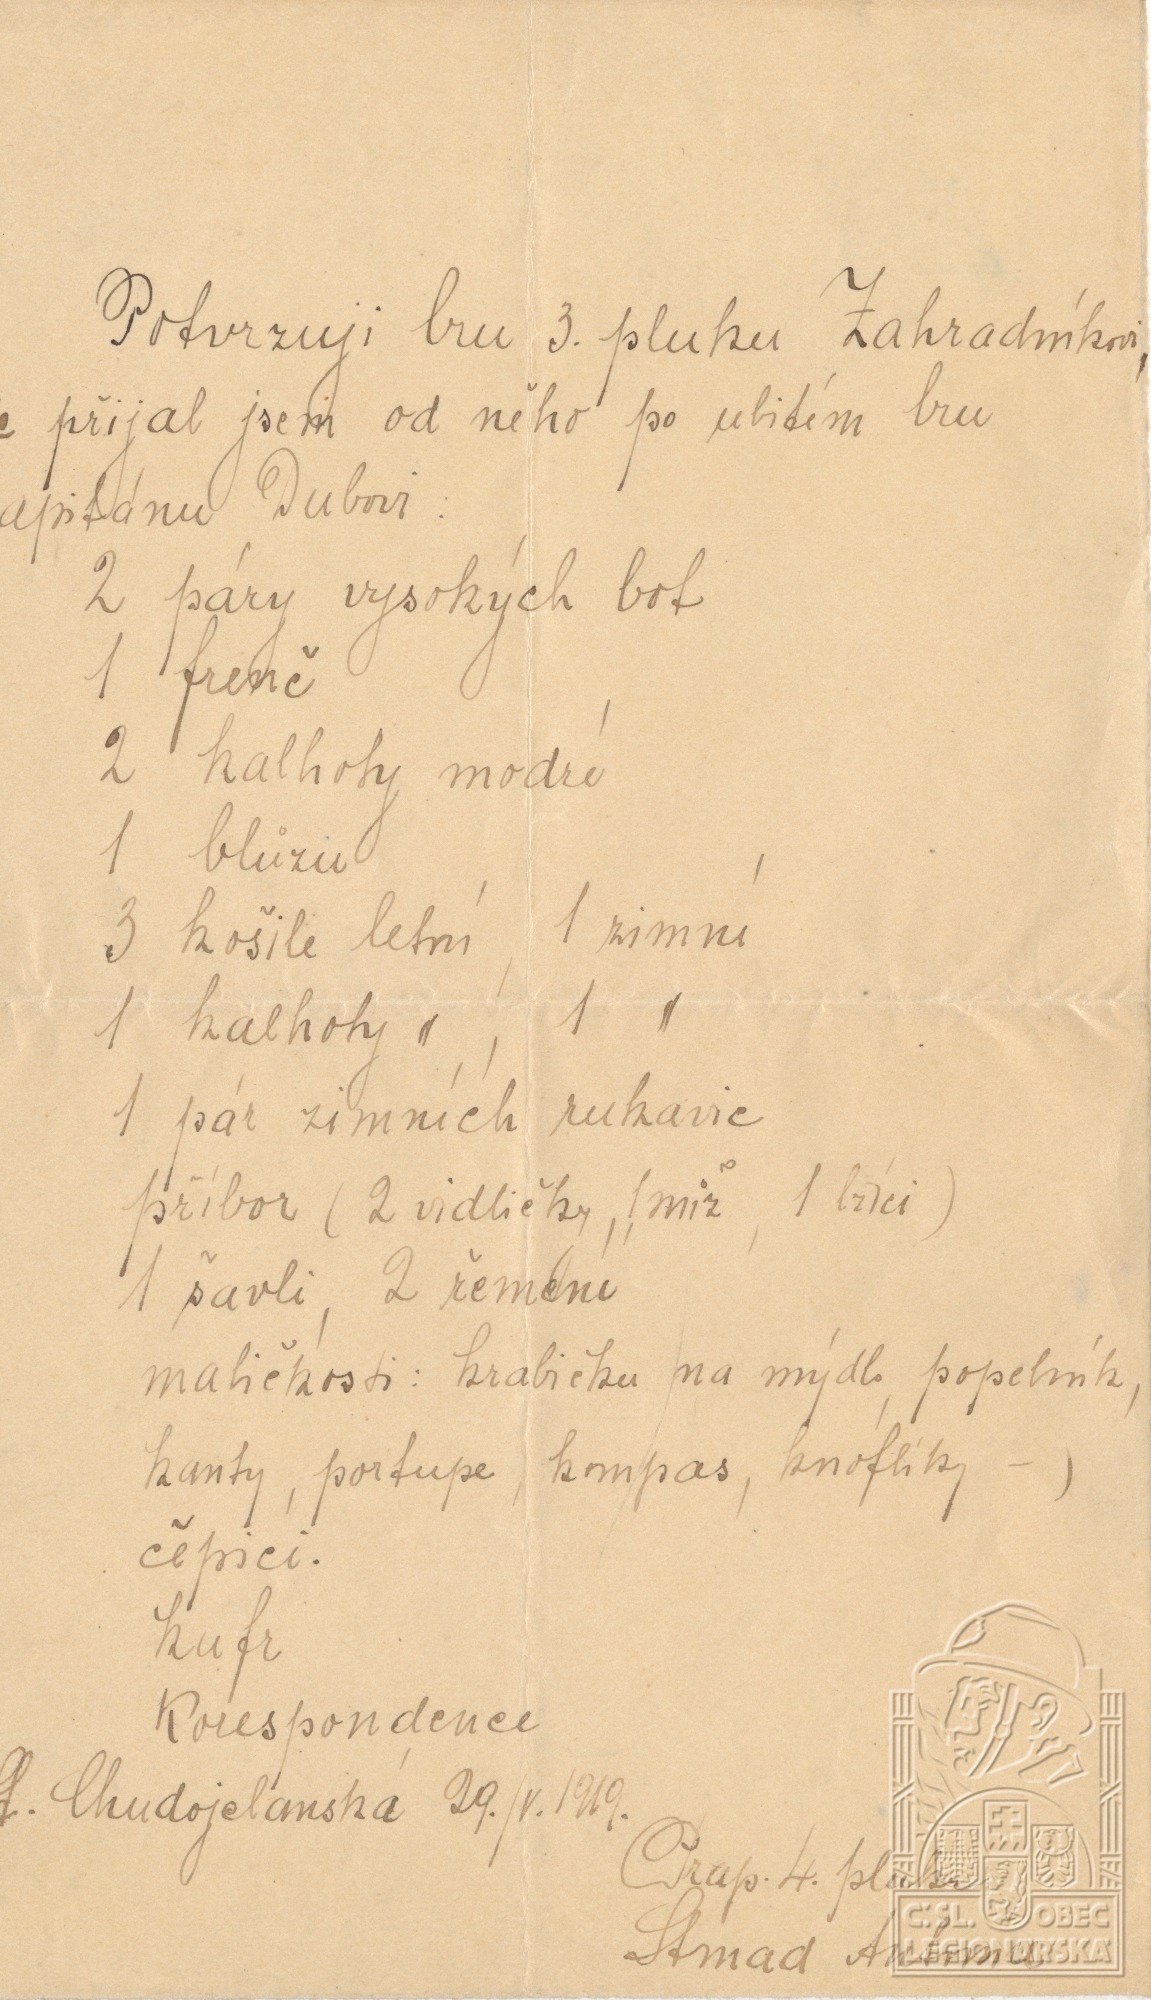 Potvrzuji bru 3. pluku Zahradníkovi,
e přijal jsem od něho po ubitém bru
apitánu Dubovi:
2 páry vysokých bot
1 frenč
2 kalhoty modré
1 blůzu
3 košile letní, 1 zimní
1 kalhoty ", 1 "
1 pár zimních rukavic
příbor (2 vidličky, 1 nůž, 1 lžíci)
1 šavli, 2 řemení
maličkosti: krabičku na mýdlo, popelník,
kanty, portupe, kompas, knóflíky –)
čěpici.
kufr
Korespondence
St. Chudojelanská 29./V. 1919.
Prap. 4. pluku
Strnad Antonín
Č.SL. OBEC
LEGIONÁŘSKÁ